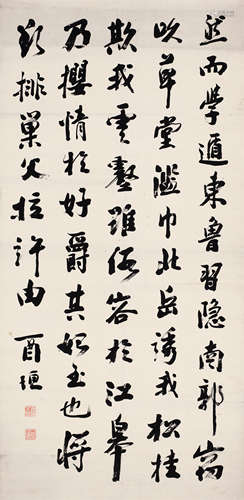 然而學遁東魯習隱南郭竊
吹草堂濫巾北岳誘我松桂
欺我雲壑雖假容於江皋
乃攖情於好爵其始至也將
欲排巢父拉許由
酉垣